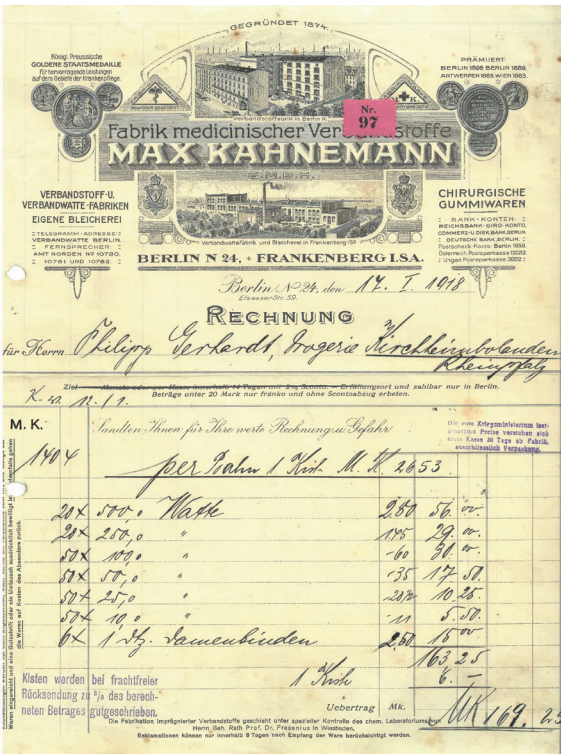 GEGRÜNDET 1874.
Königl. Preussische
GOLDENE STAATSMEDAILLE
für hervorragende Leistungen
auf dem Gebiete der Krankenpflege.
PRÄMIIERT:
BERLIN 1896 BERLIN 1889,
ANTWERPEN 1885. WIEN 1883.
Verbandstoffabrik in Berlin N.
Nr.
97
Fabrik medicinischer Verbandstoffe
MAX KAHNEMANN
G.M.B.H.
VERBANDSTOFF-U.
VERBANDWATTE-FABRIKEN
EIGENE BLEICHEREI
TELEGRAMM-ADRESSE:
VERBANDWATTE BERLIN.
FERNSPRECHER
AMT NORDEN No 10780.
10781 UND 10782.
CHIRURGISCHE
GUMMIWAREN
BANK-KONTEN:
REICHSBANK-GIRO-KONTO,
COMMERZ-U.DISK.BANK, BERLIN.
DEUTSCHE BANK, BERLIN.
Postscheck-Konto Berlin
Österreich. Postsparkasse
Ungar. Postsparkasse
Verbandwattefabrik und Bleicherei in Frankenberg i/SA
BERLIN N 24, + FRANKENBERG I.SA.
Berlin No 24, den 17. I. 1918
Elsasser-Str. 59.
RECHNUNG
für Herrn Philipp Gerhardt, Drogerie Kirchheimbolanden
Rheinpfalz
Ziel Monate oder per Kasse innerhalb 14 Tagen mit 2% Sconto. — Erfüllungsort und zahlbar nur in Berlin.
Beträge unter 20 Mark nur franko und ohne Scontoabzug erbeten.
M. K.
Sandten Ihnen für Ihre werte Rechnung u. Gefahr
Die vom Kriegsministerium fest-
gesetzten Preise verstehen sich
netto Kasse 30 Tage ab Fabrik,
ausschliesslich Verpackung.
1404 per Bahn 1 Kiste M. K. 2653
20 x 500,0 Watte 2.80 56.00
20 x 250,0 " 1.45 29.00
50 x 100,0 " -60 30.00
50 x 50,0 " -35 17.50
50 x 25,0 " -20½ 10.25
50 x 10,0 " -11 5.50
6 x 1 Dtz. Damenbinden 2,50 15.00
163.25
1 Kiste 6.-
Kisten werden bei frachtfreier
Rücksendung zu ⅔ des berech-
neten Betrages gutgeschrieben.
Uebertrag Mk. MK 169.25
Die Fabrikation imprägnierter Verbandstoffe geschieht unter spezieller Kontrolle des chem. Laboratoriums von
Herrn Geh. Rath Prof. Dr. Fresenius in Wiesbaden.
Reklamationen können nur innerhalb 8 Tagen nach Empfang der Ware berücksichtigt werden.